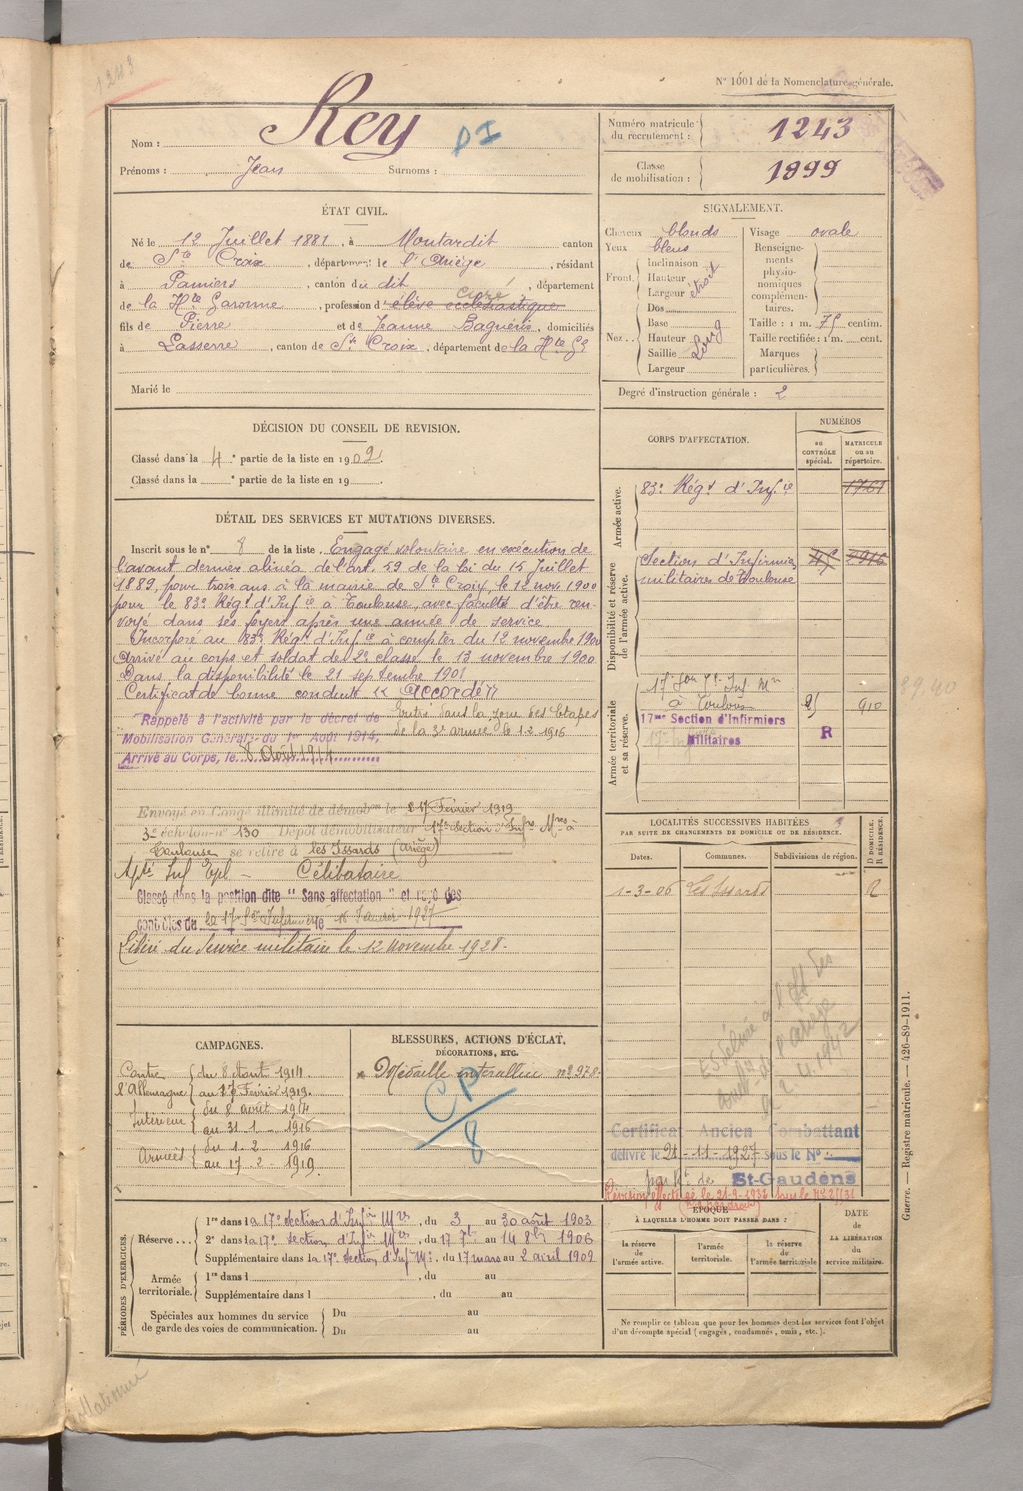 1243
N° 1001 de la Nomenclature générale.
Nom : Rey
DI
Prénoms : Jean Surnoms :
Numéro matricule du recrutement : 1243
Classe de mobilisation : 1899
ÉTAT CIVIL.
Né le 12 Juillet 1881, à Montardit canton
de Ste Croix, département de l'Ariège, résidant
à Pamiers, canton du dit, département
curé
de la Hte Garonne, profession d'élève ecclésiastique
fils de Pierre et de Jeanne Baguéris, domiciliés
à Lasserre, canton de Ste Croix, département de la Hte Gne
Marié le
SIGNALEMENT.
Cheveux blonds
Yeux bleus
Front. Inclinaison
Hauteur
Largeur étroit
Nez.. Dos
Base
Hauteur
Saillie Long
Largeur
Visage ovale
Renseignements physionomiques complémentaires.
Taille : 1 m. 75 centim.
Taille rectifiée : 1 m. cent.
Marques particulières.
Degré d'instruction générale : 2
DÉCISION DU CONSEIL DE REVISION.
Classé dans la 4e partie de la liste en 1902.
Classé dans la e partie de la liste en 19
DÉTAIL DES SERVICES ET MUTATIONS DIVERSES.
Inscrit sous le n° 8 de la liste. Engagé volontaire en exécution de
l'avant dernier alinéa de l'art. 59 de la loi du 15 Juillet
1889, pour trois ans à la mairie de Ste Croix, le 12 nov. 1900
pour le 83e Régt d'Infie à Toulouse, avec faculté d'être ren-
voyé dans ses foyers après une année de service.
Incorporé au 83e Régt d'Infie à compter du 12 novembre 1900
Arrivé au corps et soldat de 2e classe le 13 novembre 1900
Dans la disponibilité le 21 septembre 1901
Certificat de bonne conduite "Accordé"
Rappelé à l'activité par le décret de
Mobilisation Générale du 1er Août 1914,
Arrivé au Corps, le 8 Août 1914
Entré dans la zone des Etapes
de la 3e armée le 1.2.1916
Envoyé en Congé illimité de démobon le 27 Février 1919
3e échelon n° 130 Dépôt démobilisateur 17e Section d'Infrs Mres à
Toulouse se retire à Les Issards (Ariège)
Célibataire
Classé dans la position dite "Sans affectation" et rayé des
contrôles du la 17e Son Infirmiers le 16 Janvier 1927
Libéré du service militaire le 12 novembre 1928.
CORPS D'AFFECTATION.
NUMÉROS
au CONTRÔLE spécial.
MATRICULE ou au répertoire.
Armée active.
83e Régt d'Infie 1761
Disponibilité et réserve de l'armée active.
Sections d'Infirmiers
militaires de Toulouse
Armée territoriale et sa réserve.
à Toulouse 910
17me Section d'Infirmiers
Militaires
R
LOCALITÉS SUCCESSIVES HABITÉES
PAR SUITE DE CHANGEMENTS DE DOMICILE OU DE RÉSIDENCE.
Dates. Communes. Subdivisions de région. D DOMICILE. R RÉSIDENCE.
1-3-06 Les Issards R
CAMPAGNES.
Contre l'Allemagne du 8 Août 1914
au 27 Février 1919.
Intérieur du 8 août 1914
au 31.1.1916
Armées du 1-2-1916
au 17-2-1919
BLESSURES, ACTIONS D'ÉCLAT,
DÉCORATIONS, ETC.
Médaille interalliée n° 978
CP/8
Certificat Ancien Combattant
délivré le 21-11-1927 sous le N°
St-Gaudens
PÉRIODES D'EXERCICES.
Réserve... 1re dans la 17e section d'Infirs Mres, du 3 au 30 août 1903
2e dans la 17e section d'Infirs Mres, du 17 7bre au 14 8bre 1906
Supplémentaire dans la 17e section d'Infrs Mil., du 17 mars au 2 avril 1909
Armée territoriale. 1re dans l , du au
Supplémentaire dans l , du au
Spéciales aux hommes du service
de garde des voies de communication.
Du au
Du au
ÉPOQUE
À LAQUELLE L'HOMME DOIT PASSER DANS :
la réserve de l'armée active.
l'armée territoriale.
la réserve de l'armée territoriale.
DATE de LA LIBÉRATION du service militaire.
Ne remplir ce tableau que pour les hommes dont les services font l'objet
d'un décompte spécial (engagés, condamnés, omis, etc.).
Guerre. — Registre matricule. — 426-89-1911.